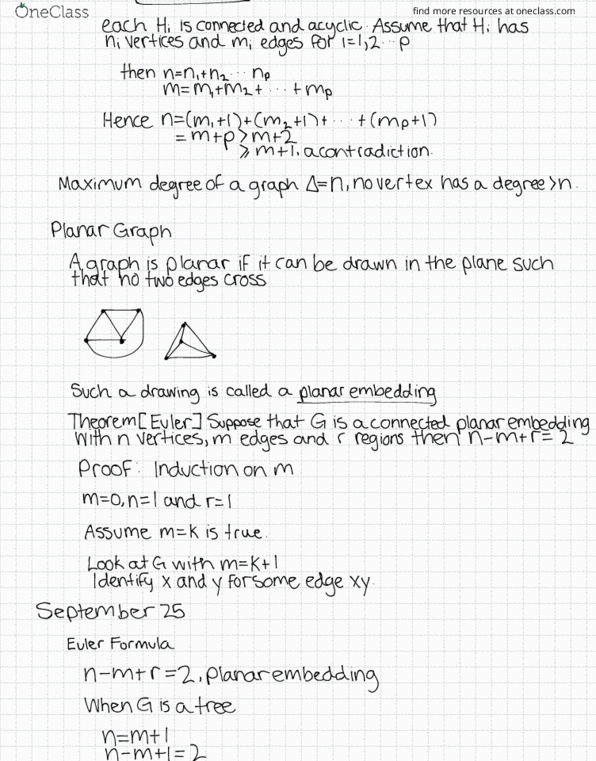 OneClass
find more resources at oneclass.com
each Hᵢ is connected and acyclic. Assume that Hᵢ has
nᵢ vertices and mᵢ edges for i=1,2...p
then n=n₁+n₂...nₚ
m=m₁+m₂+...+mₚ
Hence n=(m₁+1)+(m₂+1)+...+(mₚ+1)
=m+p>m+2
≥m+1, a contradiction.
Maximum degree of a graph Δ=n, no vertex has a degree >n.
Planar Graph
A graph is planar if it can be drawn in the plane such
that no two edges cross
Such a drawing is called a planar embedding
Theorem [Euler] Suppose that G is a connected planar embedding
with n vertices, m edges and r regions then n-m+r=2
Proof: Induction on m
m=0, n=1 and r=1
Assume m=k is true.
Look at G with m=k+1
Identify x and y for some edge xy.
September 25
Euler Formula
n-m+r=2, planar embedding
When G is a tree
n=m+1
n-m+1=2